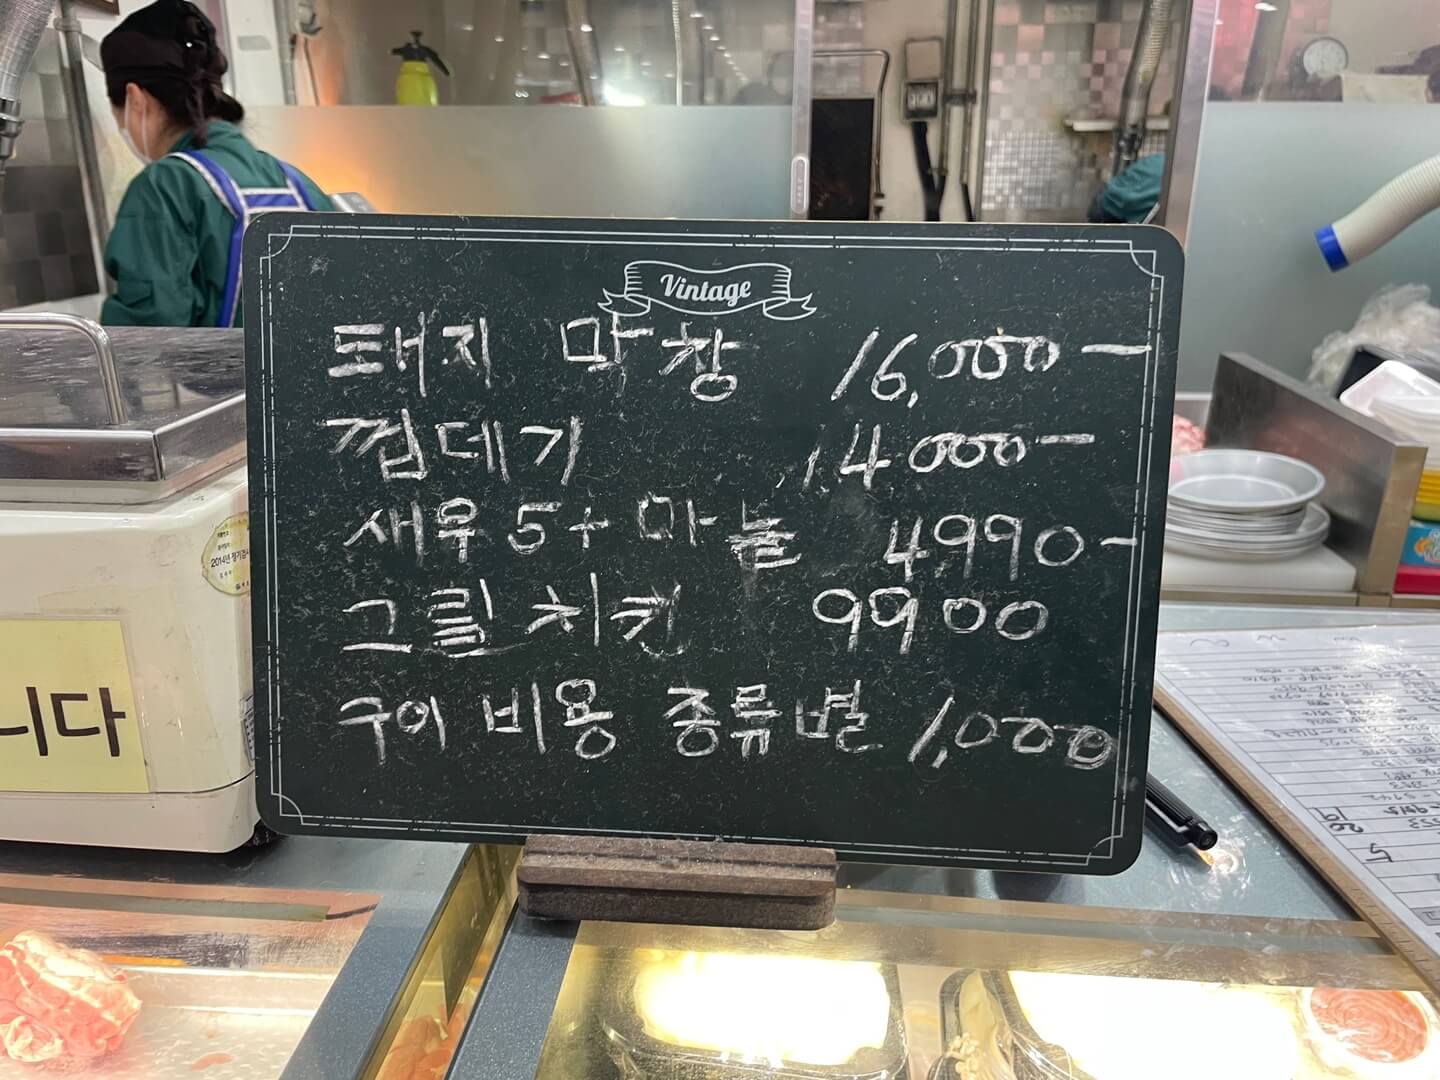 Vintage
돼지 막창 16,000-
껍데기 14000-
새우5+마늘 4990-
그릴치킨 9900
구이 비용 종류별 1,000
2014년 정기검사
니다